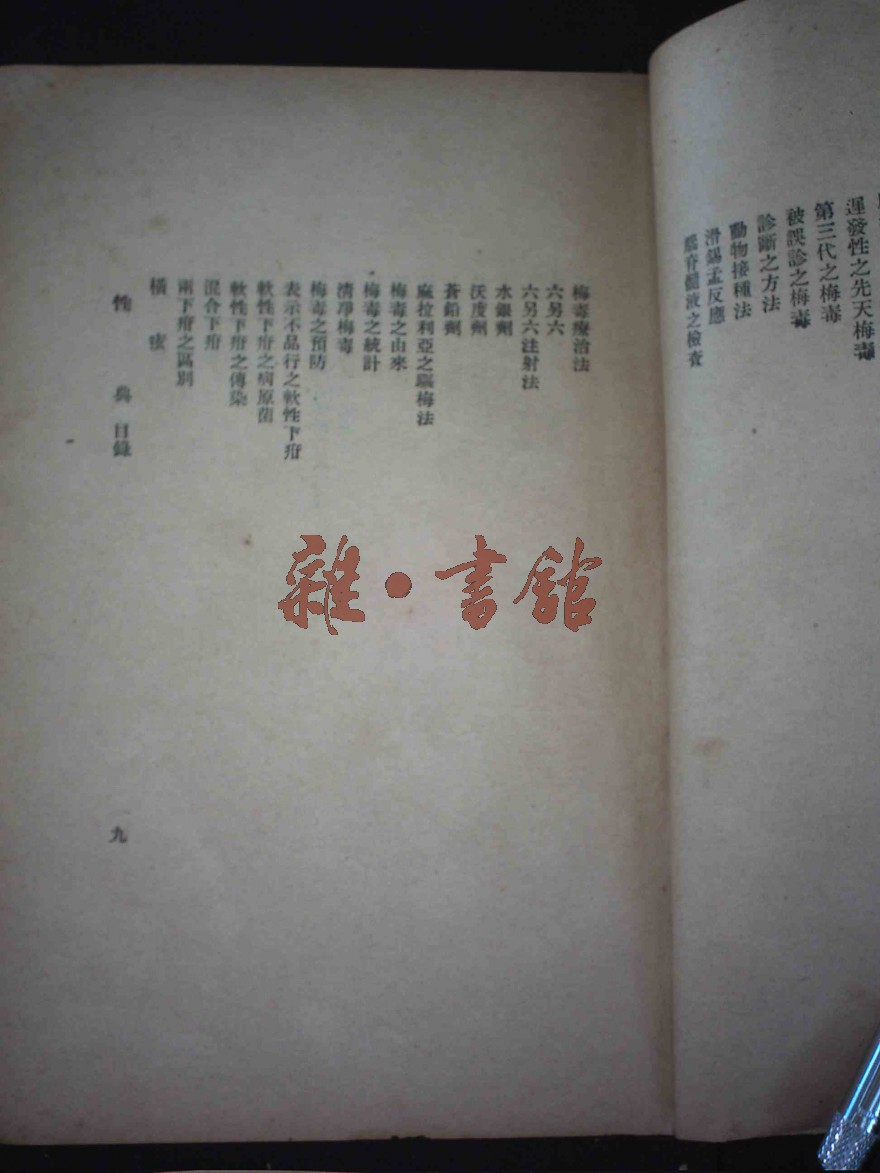 遲發性之先天梅毒
第三代之梅毒
被誤診之梅毒
診斷之方法
動物接種法
滑錫孟反應
腦脊髓液之檢查
梅毒療治法
六另六
六另六注射法
水銀劑
沃度劑
蒼鉛劑
麻拉利亞之驅梅法
梅毒之由來
梅毒之統計
清凈梅毒
梅毒之預防
表示不品行之軟性下疳
軟性下疳之病原菌
軟性下疳之傳染
混合下疳
兩下疳之區別
橫痃
性典 目錄
九
雜·書館